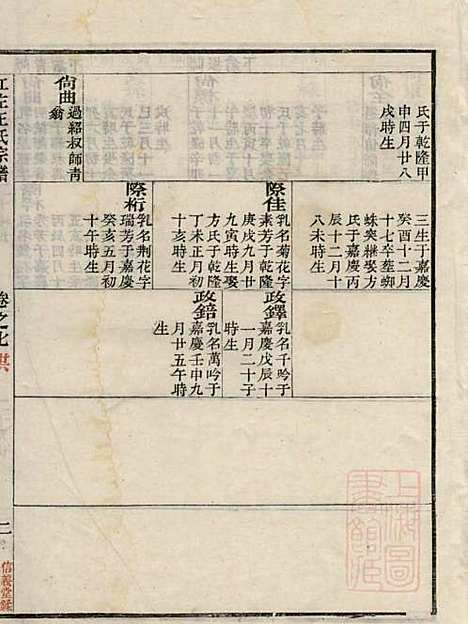 氏于乾隆甲
申四月廿八
戌時生
尙曲
過紹叔師靑
翁
三生于嘉慶
癸酉十二月
十七卒葬蜘
蛛與継娶方
氏于嘉慶丙
辰十二月十
八未時生
際佳
乳名菊花字
素芳于乾隆
庚戌九月廿
九寅時生娶
方氏于乾隆
丁未正月初
十亥時生
際桁
乳名荆花字
瑞芳于嘉慶
癸亥五月初
十午時生
政鐸
乳名千吟于
嘉慶戊辰十
一月二十子
時生
政錇
乳名萬吟于
嘉慶壬申九
月廿五午時
生
江左王氏宗譜
卷之七
二
信義堂錄
上海圖
書館庄